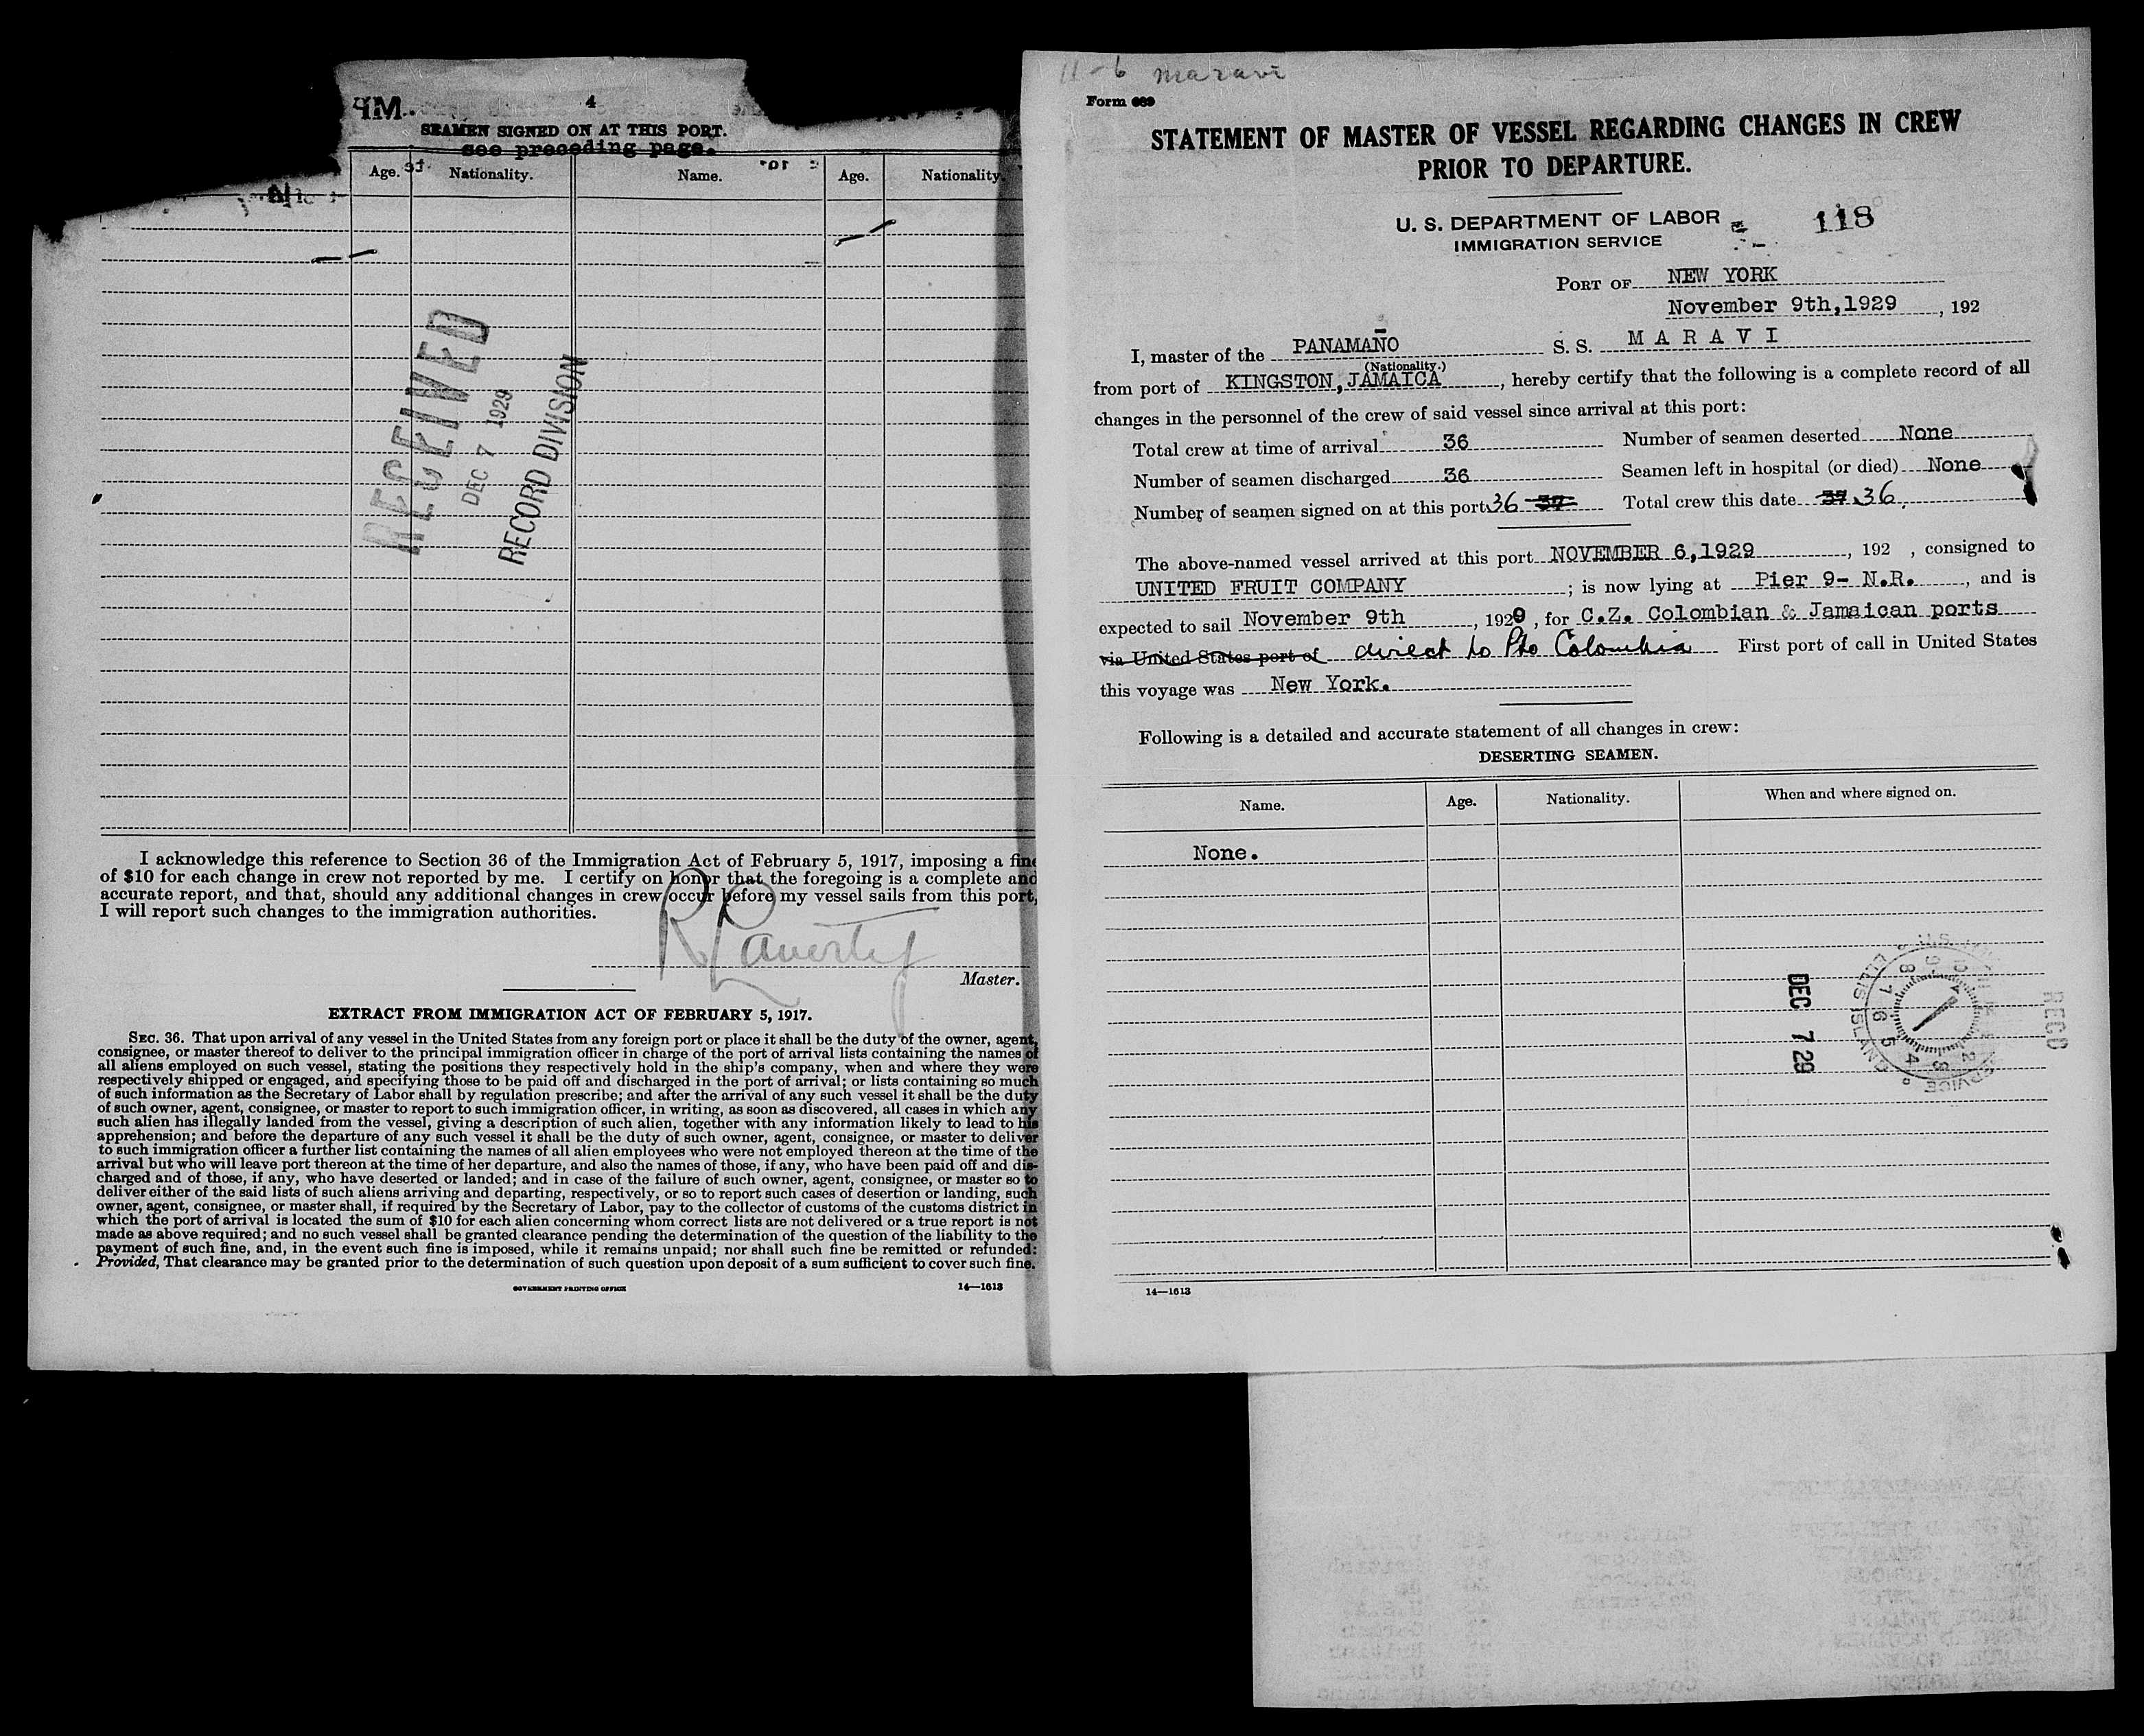 PM.
4
SEAMEN SIGNED ON AT THIS PORT.
see preceding page.
Age. Nationality. Name. Age. Nationality.
RECEIVED
DEC 7 1929
RECORD DIVISION
I acknowledge this reference to Section 36 of the Immigration Act of February 5, 1917, imposing a fine
of $10 for each change in crew not reported by me. I certify on honor that the foregoing is a complete and
accurate report, and that, should any additional changes in crew occur before my vessel sails from this port,
I will report such changes to the immigration authorities.
Master.
EXTRACT FROM IMMIGRATION ACT OF FEBRUARY 5, 1917.
SEC. 36. That upon arrival of any vessel in the United States from any foreign port or place it shall be the duty of the owner, agent,
consignee, or master thereof to deliver to the principal immigration officer in charge of the port of arrival lists containing the names of
all aliens employed on such vessel, stating the positions they respectively hold in the ship's company, when and where they were
respectively shipped or engaged, and specifying those to be paid off and discharged in the port of arrival; or lists containing so much
of such information as the Secretary of Labor shall by regulation prescribe; and after the arrival of any such vessel it shall be the duty
of such owner, agent, consignee, or master to report to such immigration officer, in writing, as soon as discovered, all cases in which any
such alien has illegally landed from the vessel, giving a description of such alien, together with any information likely to lead to his
apprehension; and before the departure of any such vessel it shall be the duty of such owner, agent, consignee, or master to deliver
to such immigration officer a further list containing the names of all alien employees who were not employed thereon at the time of the
arrival but who will leave port thereon at the time of her departure, and also the names of those, if any, who have been paid off and dis-
charged and of those, if any, who have deserted or landed; and in case of the failure of such owner, agent, consignee, or master so to
deliver either of the said lists of such aliens arriving and departing, respectively, or so to report such cases of desertion or landing, such
owner, agent, consignee, or master shall, if required by the Secretary of Labor, pay to the collector of customs of the customs district in
which the port of arrival is located the sum of $10 for each alien concerning whom correct lists are not delivered or a true report is not
made as above required; and no such vessel shall be granted clearance pending the determination of the question of the liability to the
payment of such fine, and, in the event such fine is imposed, while it remains unpaid; nor shall such fine be remitted or refunded:
Provided, That clearance may be granted prior to the determination of such question upon deposit of a sum sufficient to cover such fine.
GOVERNMENT PRINTING OFFICE 14—1613
11-6 maravi
Form 689
STATEMENT OF MASTER OF VESSEL REGARDING CHANGES IN CREW
PRIOR TO DEPARTURE.
U. S. DEPARTMENT OF LABOR
IMMIGRATION SERVICE
118
PORT OF NEW YORK
November 9th,1929, 192
I, master of the PANAMAÑO S. S. M A R A V I
(Nationality.)
from port of KINGSTON, JAMAICA, hereby certify that the following is a complete record of all
changes in the personnel of the crew of said vessel since arrival at this port:
Total crew at time of arrival 36 Number of seamen deserted None
Number of seamen discharged 36 Seamen left in hospital (or died) None
Number of seamen signed on at this port 36 37 Total crew this date 37 36
The above-named vessel arrived at this port NOVEMBER 6,1929, 192 , consigned to
UNITED FRUIT COMPANY ; is now lying at Pier 9- N.R. , and is
expected to sail November 9th , 1929 , for C.Z. Colombian & Jamaican ports
via United States port of direct to Pto Colombia First port of call in United States
this voyage was New York.
Following is a detailed and accurate statement of all changes in crew:
DESERTING SEAMEN.
Name. Age. Nationality. When and where signed on.
None.
DEC 7 29
RECD
ELLIS ISLAND
14—1613